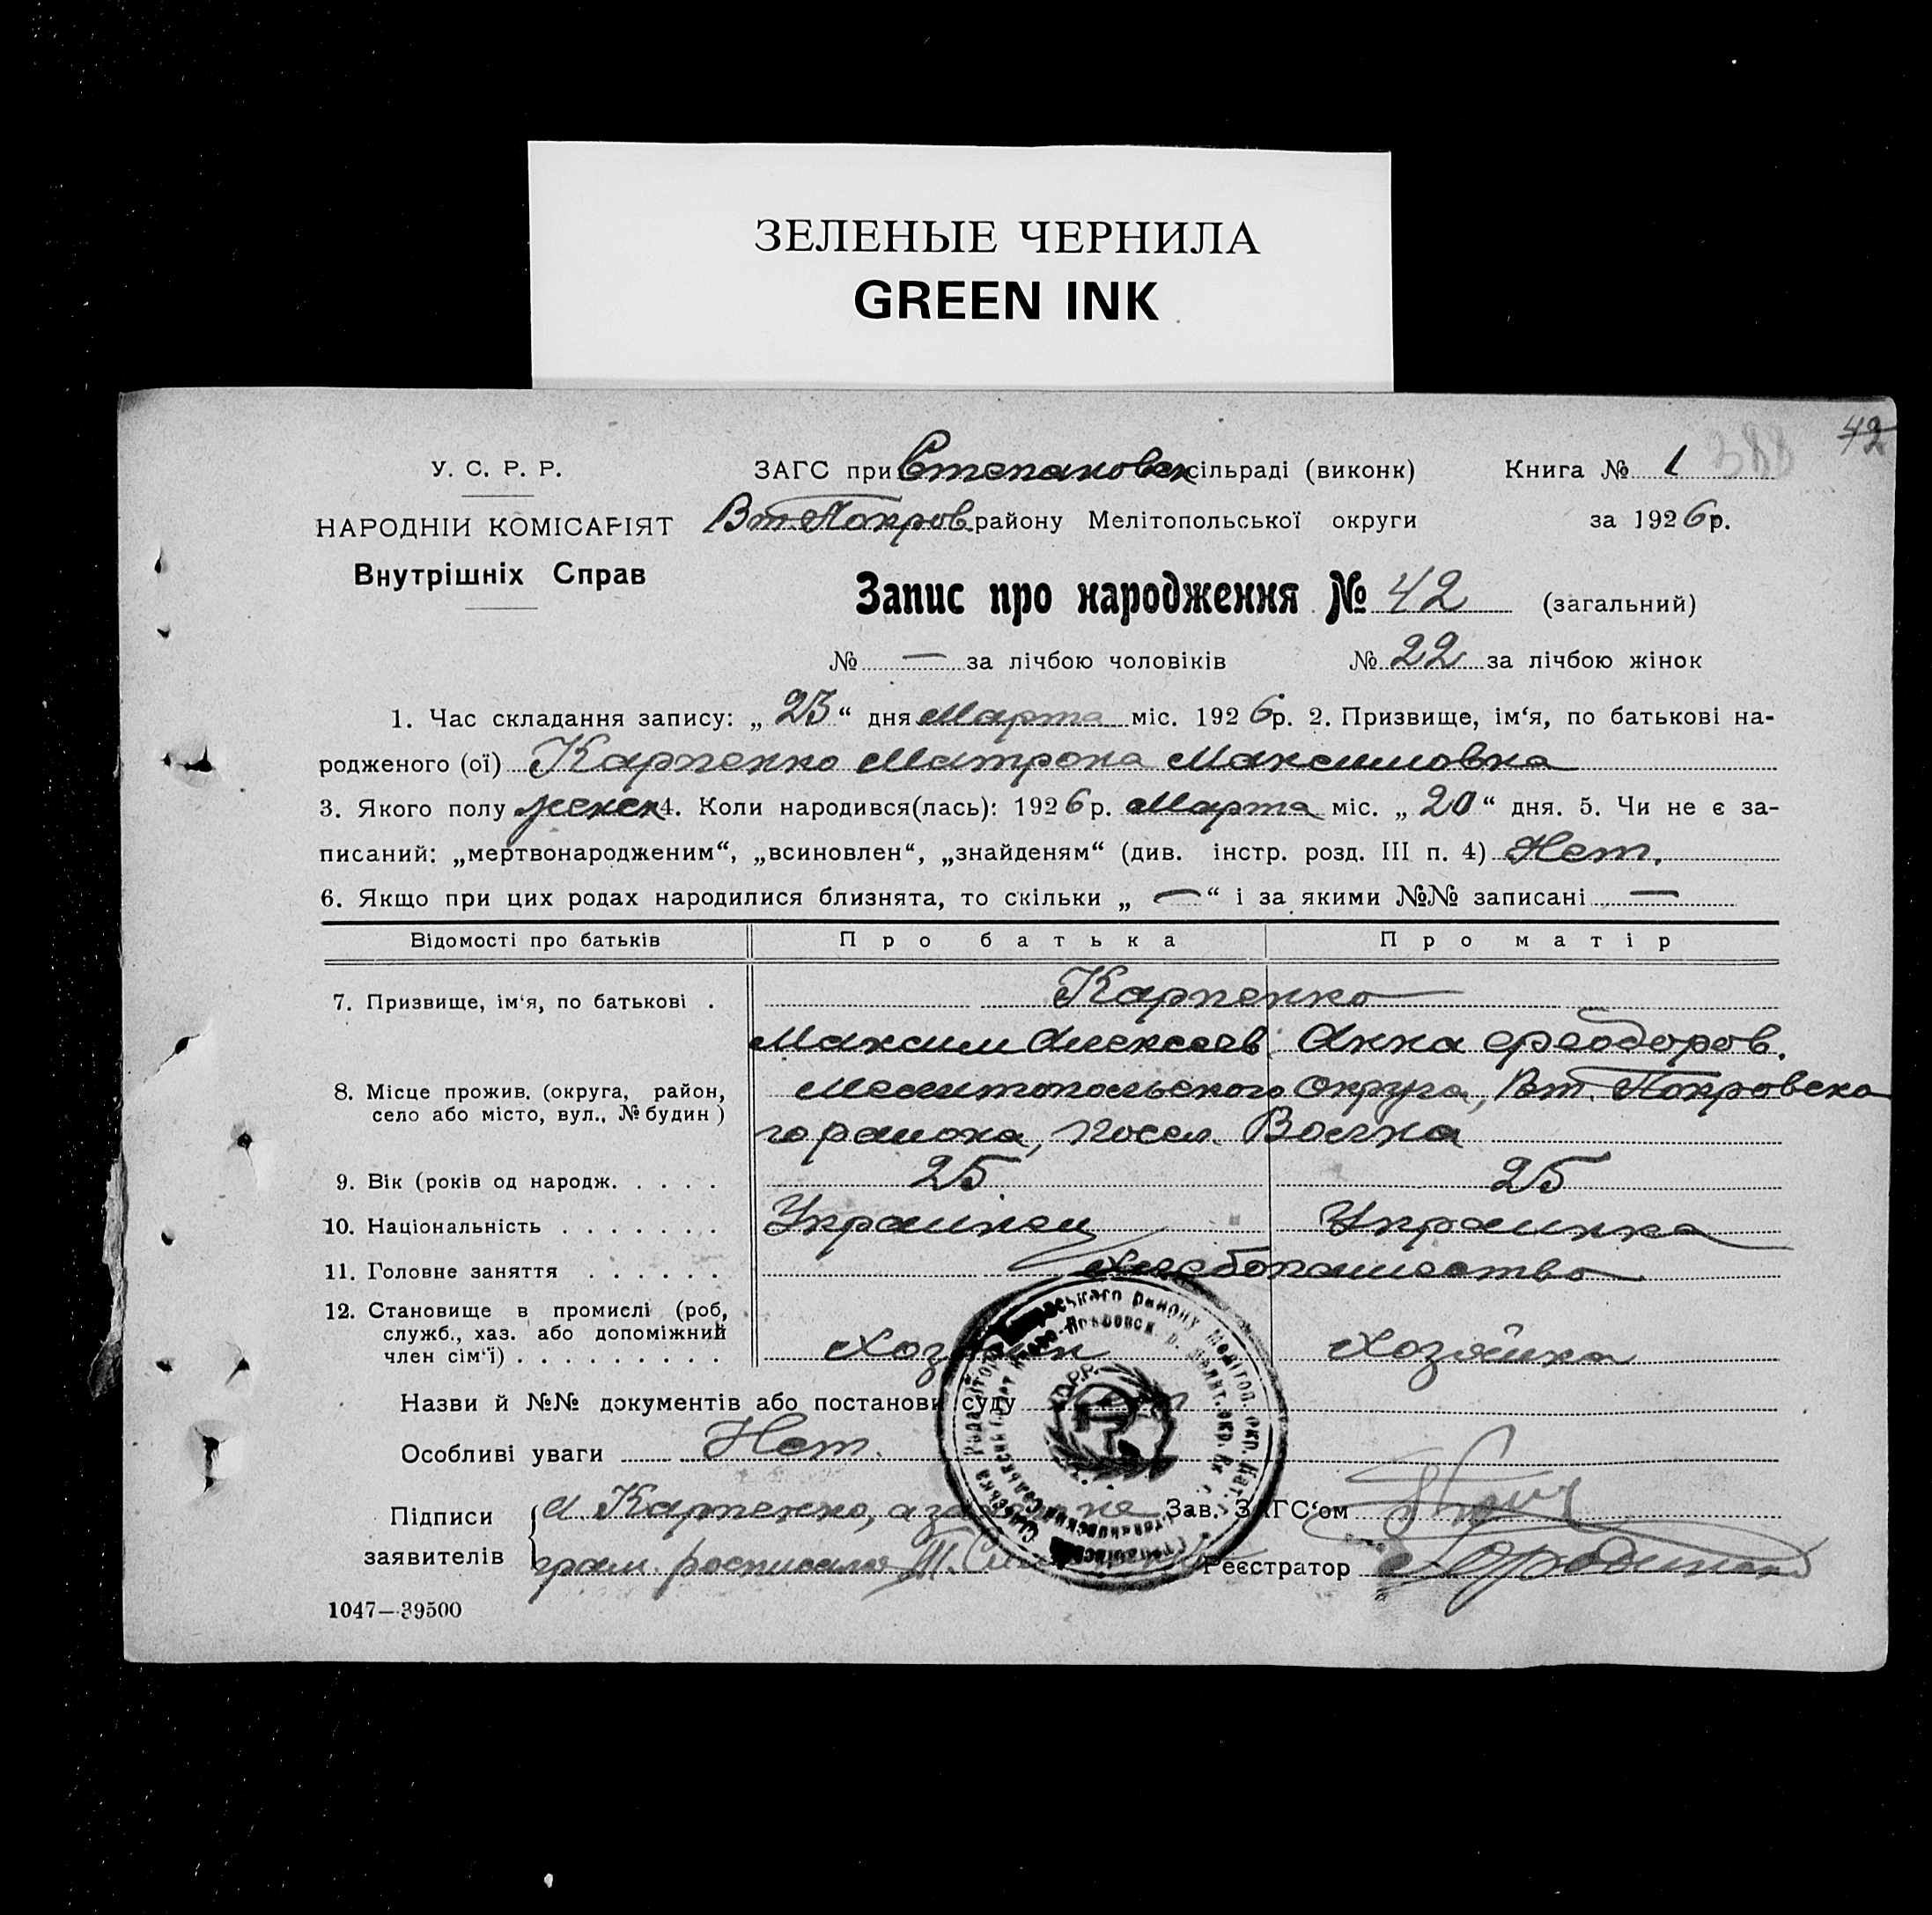 ЗЕЛЕНЫЕ ЧЕРНИЛА
GREEN INK
42
388
У. С. Р. Р.
ЗАГС при Степановск сільраді (виконк)
Книга № 1
НАРОДНІЙ КОМІСАРІЯТ
Вт Покров. району Мелітопольської округи
за 1926р.
Внутрішніх Справ
Запис про народження № 42 (загальний)
№ — за лічбою чоловіків № 22 за лічбою жінок
1. Час складання запису: „ 23 “ дня Марта міс. 1926р. 2. Призвище, ім‘я, по батькові на-
родженого (ої) Карпенко Матрона Максимовна
3. Якого полу женск 4. Коли народився(лась): 1926р. Марта міс. „ 20 “ дня. 5. Чи не є за-
писаний: „мертвонародженим“, „всиновлен“, „знайденям“ (див. інстр. розд. III п. 4) Нет.
6. Якщо при цих родах народилися близнята, то скільки „ — “ і за якими №№ записані —
Відомості про батьків Про батька Про матір
7. Призвище, ім‘я, по батькові . Карпенко
Максим Алексеев Анна Феодоров.
8. Місце прожив. (округа, район, Мелитопольского округа, Вт. Покровско
село або місто, вул., № будин) го района, посел. Волна
9. Вік (років од народж. . . . . 25. 25
10. Національність . . . . . . . Украинец Украинка
11. Головне заняття . . . . . . Хлебопашество
12. Становище в промислі (роб,
служб., хаз. або допоміжний
член сім‘ї) . . . . . . . . . Хозяин Хозяйка
Назви й №№ документів або постанови суду
Особливі уваги Нет.
Підписи
заявителів
А Карпенко, а за
Зав. ЗАГС‘ом
грам. росписался
Реєстратор
1047—39500